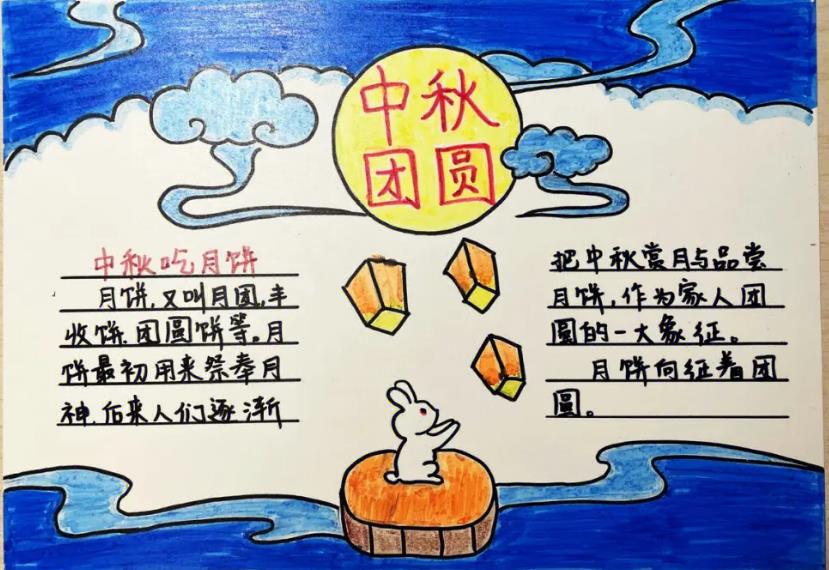 中秋
团圆
中秋吃月饼
月饼,又叫月团,丰
收饼、团圆饼等。月
饼最初用来祭奉月
神,后来人们逐渐
把中秋赏月与品尝
月饼,作为家人团
圆的一大象征。
月饼向征着团
圆。